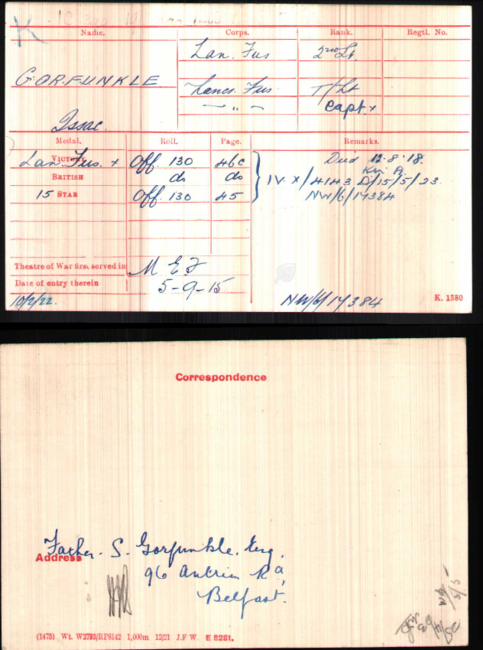 K
Name. Corps. Rank. Regtl. No.
Lan. Fus 2nd Lt.
GORFUNKLE Lancs. Fus. T/Lt
— " — Capt. x
Issac.
Medal. Roll. Page. Remarks.
Lan. Fus. x VICTORY Off. 130 46c Died 12.8.18.
BRITISH do do IV X/4143 D/15/5/23.
15 STAR Off. 130 45 NW/6/17384
Theatre of War first served in M E F
Date of entry therein 5-9-15
10/2/22. NW/6/17384 K. 1380
Correspondence
Father. S. Gorfunkle. Esq.
Address 96 Antrim Rd,
Belfast.
(1475) Wt. W2793/RP8142 1,000m 12/21 J.F.W. E 8281.